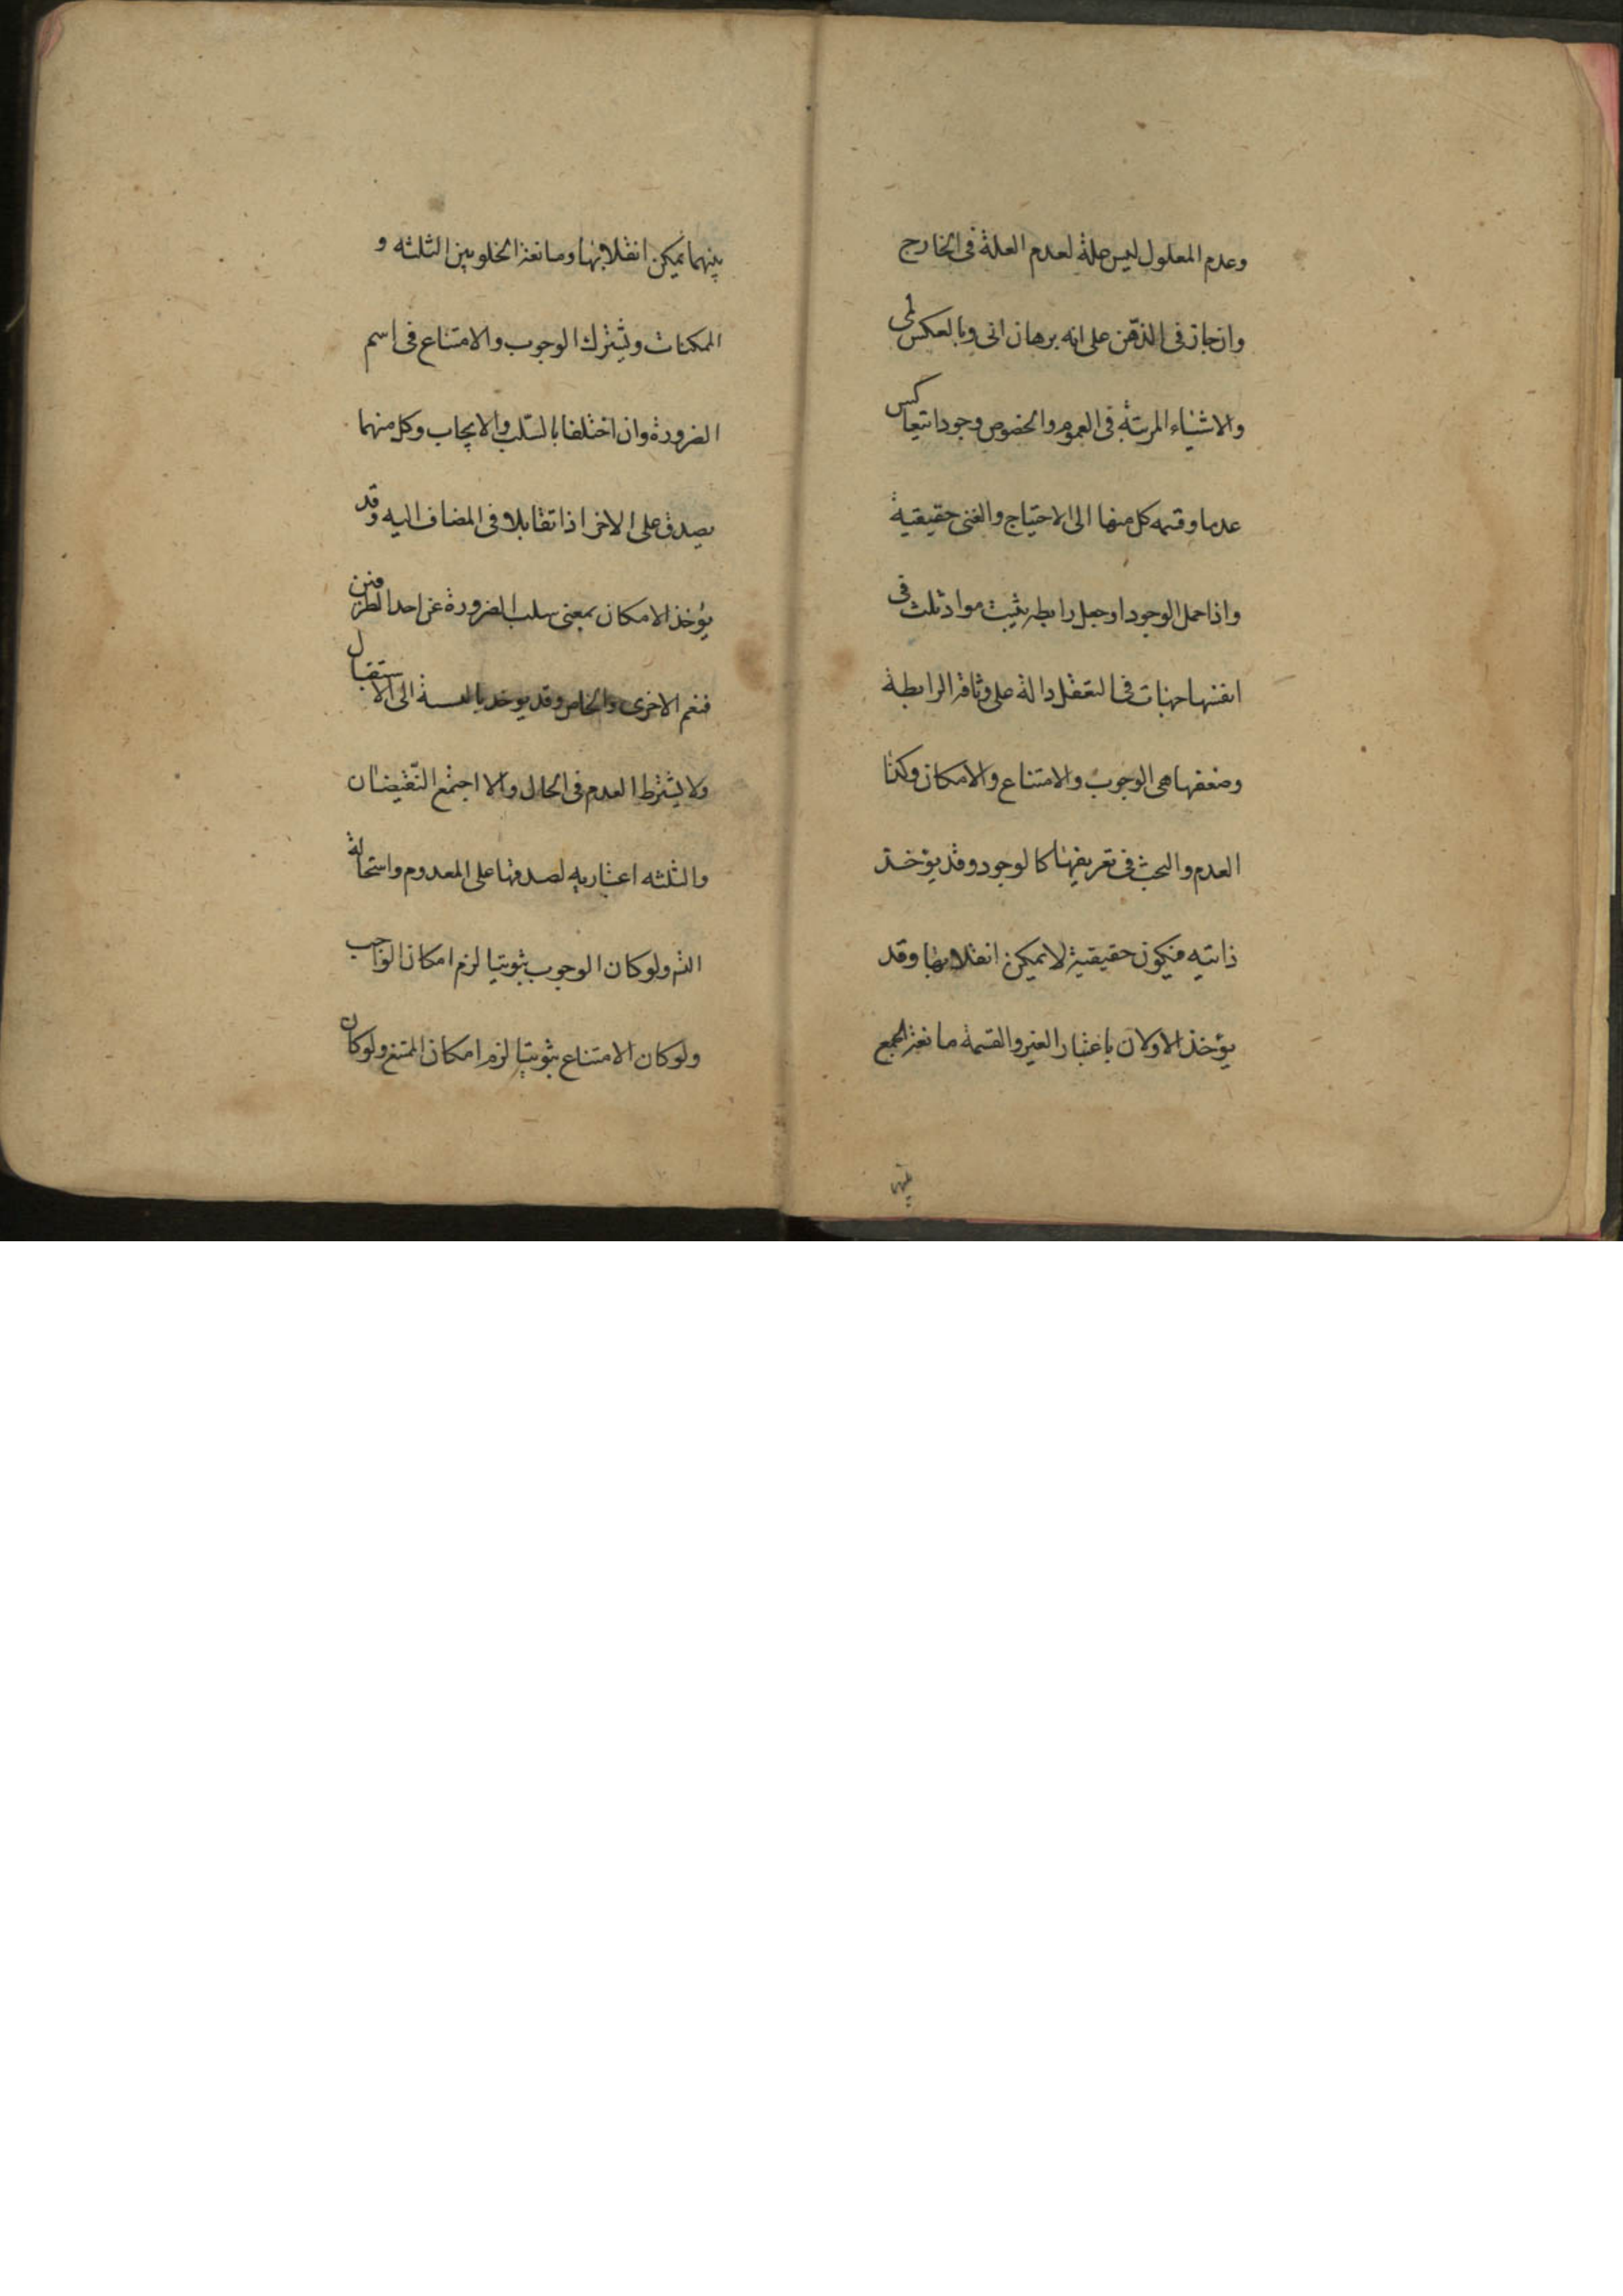 وعدم المعلول ليس علة لعدم العلة فى الخارج
وان جاز فى الذهن على انه برهان انى وبالعكس لمى
والاشياء المرتبة فى العموم والخصوص وجودا تتعاكس
عدما وقسمه كل منهما الى الاحتياج والغنى حقيقية
واذا حمل الوجود او جعل رابطه يثبت مواد ثلث فى
انفسها جهات فى التعقل دالة على وثاقة الرابطة
وضعفها هى الوجوب والامتناع والامكان وكذا
العدم والبحث فى تعريفها كالوجود وقد يؤخذ
ذاتيه فيكون حقيقية لا يمكن انقلابها وقد
يؤخذ الاولان باعتبار الغير والقسمة مانعة الجمع
بينهما
بينهما يمكن انقلابها ومانعة الخلو بين الثلثه و
الممكنات ويشترك الوجوب والامتناع فى اسم
الضرورة وان اختلفا بالسلب والايجاب وكل منهما
يصدق على الاخر اذا تقابلا فى المضاف اليه وقد
يؤخذ الامكان بمعنى سلب الضرورة عن احد الطرفين
فتعم الاخرى والخاص وقد يوخذ بالنسبة الى الاستقبال
ولا يشترط العدم فى الحال والا اجتمع النقيضان
والثلثه اعتباريه لصدقها على المعدوم واستحالة
التسم ولو كان الوجوب ثبوتيا لزم امكان الواجب
ولو كان الامتناع ثبوتيا لزم امكان الممتنع ولو كان